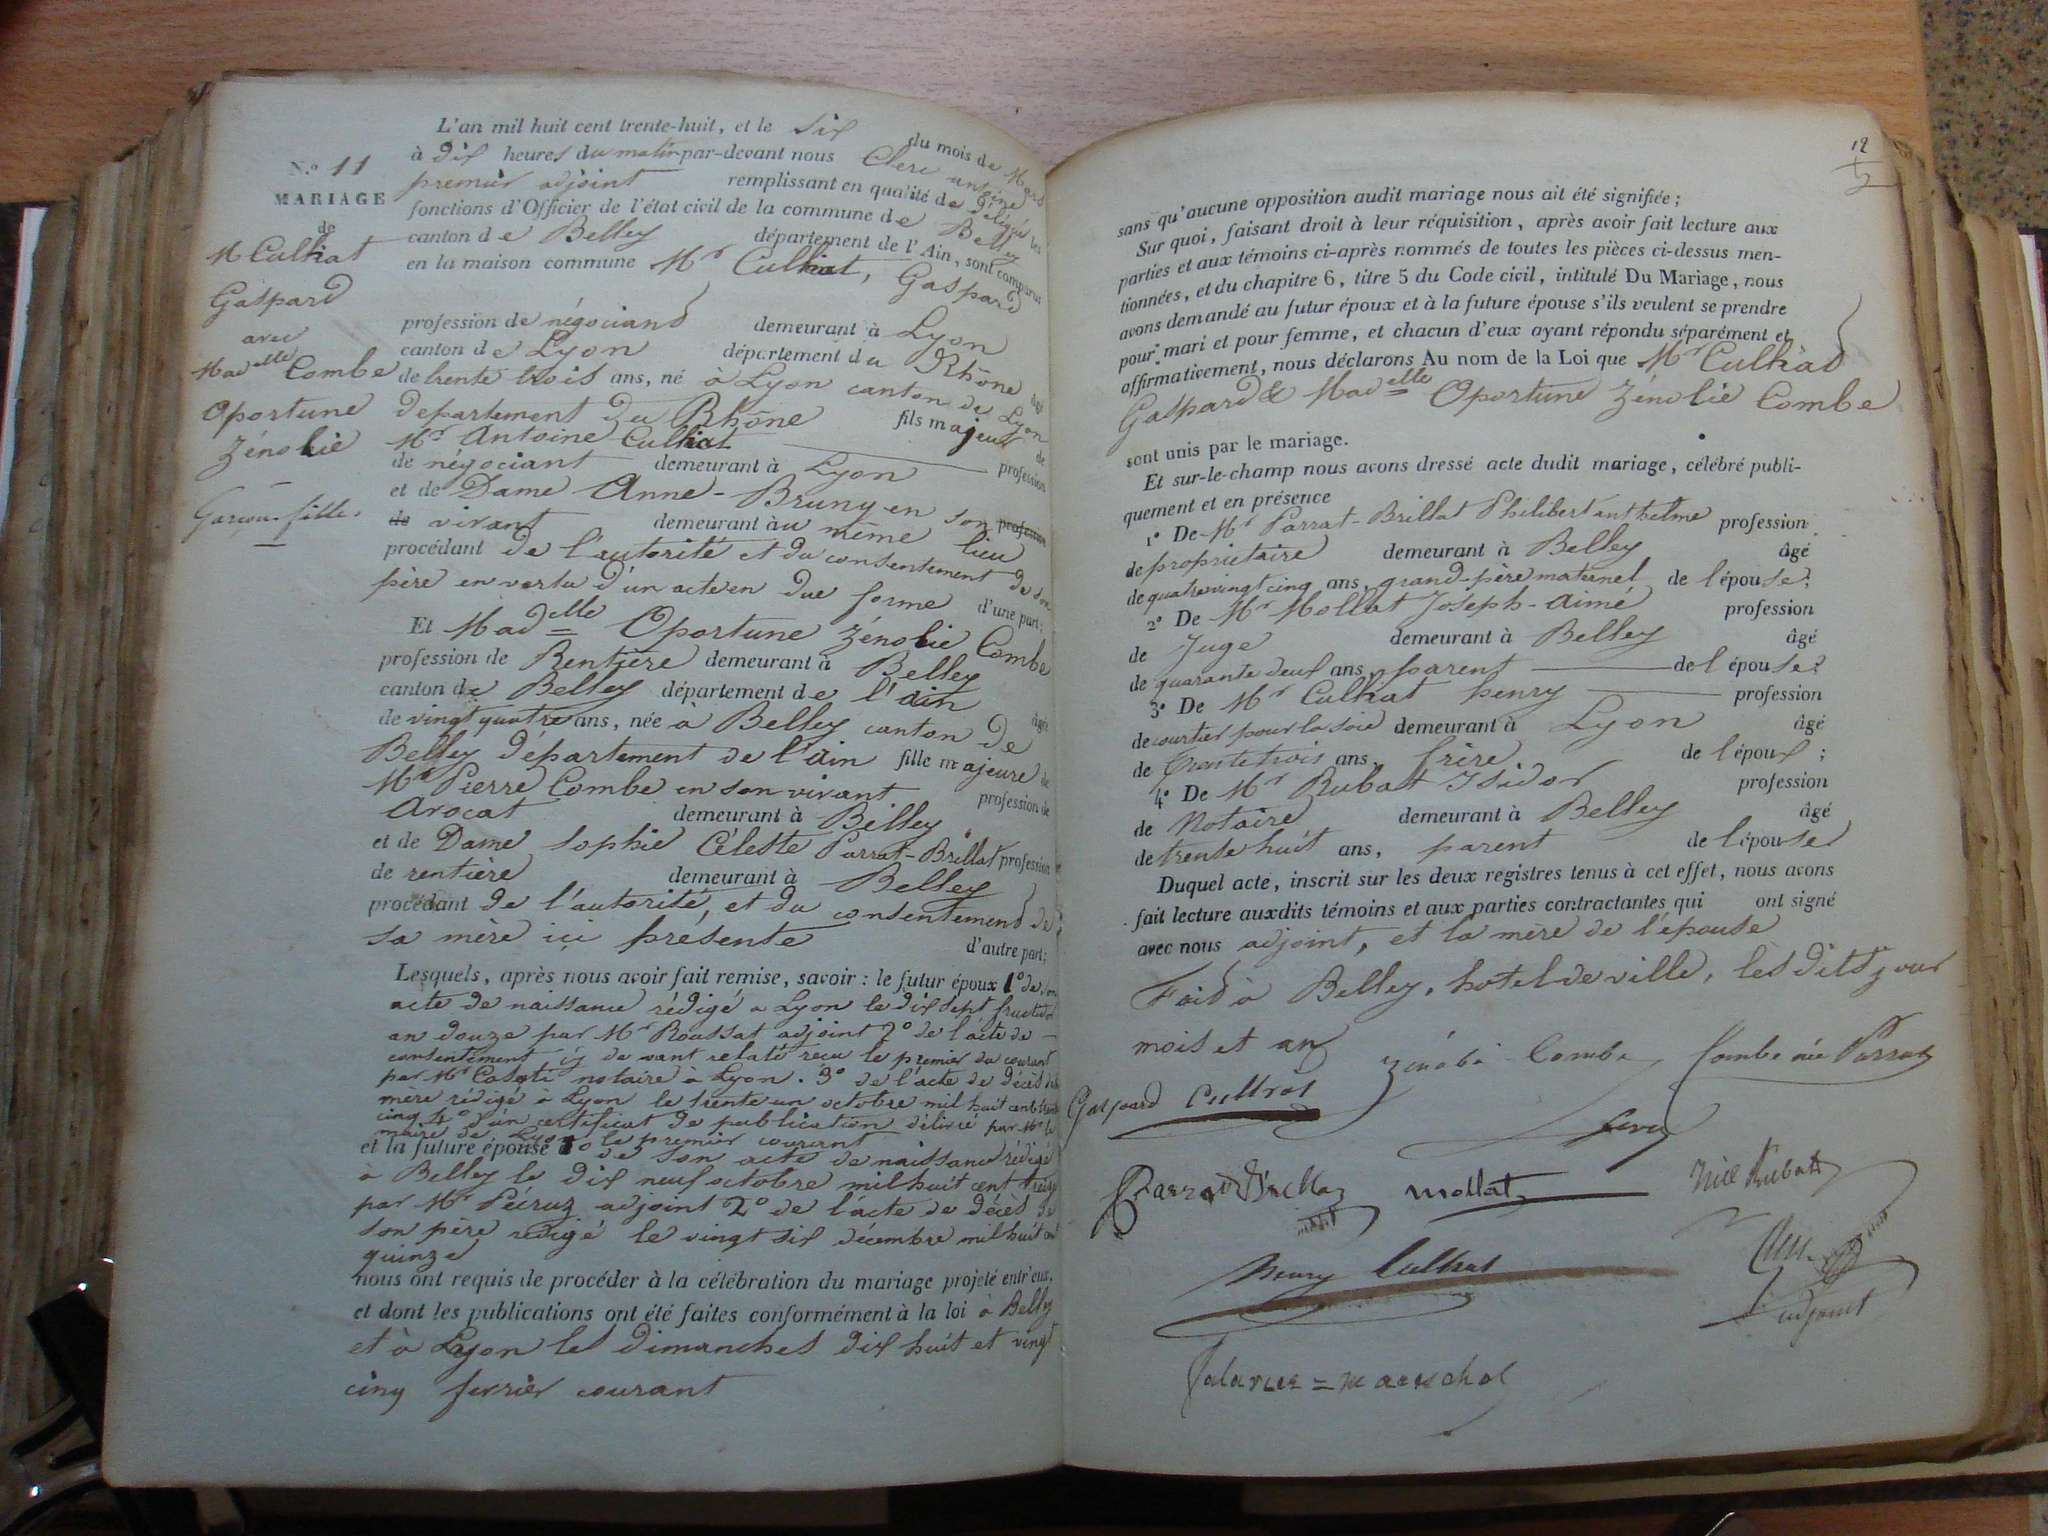 N.o 11
MARIAGE
de
M Culhat
Gaspard
avec
Madelle Combe
Oportune
Zénobie
Garçon-fille.
L'an mil huit cent trente-huit, et le six du mois de Mars
à dix heures du matin par-devant nous Clerc antoine
premier adjoint remplissant en qualité de délégué les
fonctions d'Officier de l'état civil de la commune de Belley
canton de Belley département de l'Ain, sont comparus
en la maison commune Mr Culhat, Gaspard
profession de négociant demeurant à Lyon
canton de Lyon département du Rhône âgé
de trente trois ans, né à Lyon canton de Lyon
departement du Rhône fils majeur de
Mr Antoine Culhat profession
de négociant demeurant à Lyon
et de Dame Anne-Bruny en son profession
de vivant demeurant au même lieu
procédant de l'autorité et du consentement de son
père en vertu d'un acte en due forme d'une part;
Et Madelle Oportune Zénobie Combe
profession de Rentière demeurant à Belley
canton de Belley département de l'ain âgée
de vingt quatre ans, née à Belley canton de
Belley département de l'ain fille majeure de
Mr Pierre Combe en son vivant profession de
Avocat demeurant à Belley
et de Dame Sophie Céleste Parrat-Brillat profession
de rentière demeurant à Belley
procédant de l'autorité, et du consentement de
sa mère ici présente d'autre part;
Lesquels, après nous avoir fait remise, savoir : le futur époux 1o de son
acte de naissance rédigé a Lyon le dix sept fructidor
an douze par Mr Roussat adjoint 2o de l'acte de
consentement cy devant relaté reçu le premier du courant
par Mr Casati notaire à Lyon. 3o de l'acte de décès de sa
mère rédigé à Lyon le trente un octobre mil huit cent trente
cinq 4o d'un certificat de publication délivré par Mr le
maire de Lyon le premier courant
et la future épouse 1o de son acte de naissance rédigé
à Belley le dix neuf octobre mil huit cent treize
par Mr Pécruz adjoint 2o de l'acte de décès de
son père rédigé le vingt six décembre mil huit cent
quinze
nous ont requis de procéder à la célébration du mariage projeté entr'eux,
et dont les publications ont été faites conformément à la loi à Belley
et à Lyon les dimanches dix huit et vingt
cinq fevrier courant
12
sans qu'aucune opposition audit mariage nous ait été signifiée;
Sur quoi, faisant droit à leur réquisition, après avoir fait lecture aux
parties et aux témoins ci-après nommés de toutes les pièces ci-dessus men-
tionnées, et du chapitre 6, titre 5 du Code civil, intitulé Du Mariage, nous
avons demandé au futur époux et à la future épouse s'ils veulent se prendre
pour mari et pour femme, et chacun d'eux ayant répondu séparément et
affirmativement, nous déclarons Au nom de la Loi que Mr Culhat
Gaspard & Madelle Oportune Zénobie Combe
sont unis par le mariage.
Et sur-le-champ nous avons dressé acte dudit mariage, célébré publi-
quement et en présence
1o De Mr Parrat-Brillat Philibert anthelme profession
de propriétaire demeurant à Belley âgé
de quatre vingt cinq ans, grand-père maternel de l'épouse;
2o De Mr Mollat Joseph-Aimé profession
de Juge demeurant à Belley âgé
de quarante deux ans, parent de l'épouse;
3o De Mr Culhat henry profession
de courtier pour la soie demeurant à Lyon âgé
de trente trois ans, frère de l'époux;
4o De Mr Rubat Isidor profession
de Notaire demeurant à Belley âgé
de trente huit ans, parent de l'épouse
Duquel acte, inscrit sur les deux registres tenus à cet effet, nous avons
fait lecture auxdits témoins et aux parties contractantes qui ont signé
avec nous adjoint, et la mère de l'épouse
Fait à Belley, hotel de ville, les dits jour
mois et an
Zénobie Combe Combe née Parrat
Gaspard Culhat
Parrat Brillat Mollat Rubat
henry Culhat
Clerc
adjoint